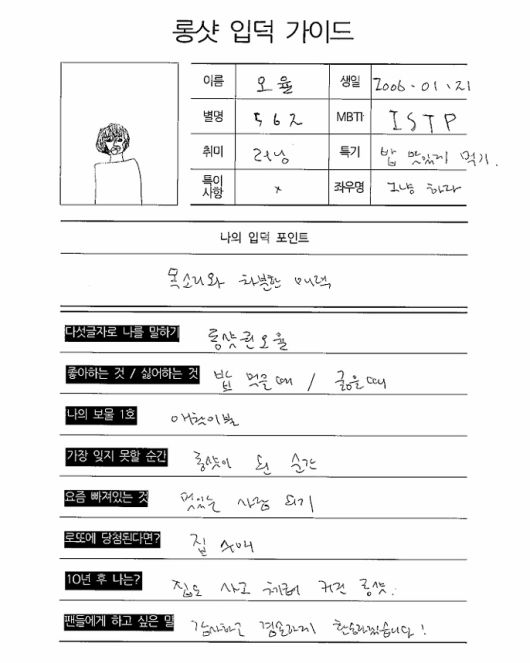 롱샷 입덕 가이드
이름 오율 생일 2006.01.21
별명 562 MBTI ISTP
취미 러닝 특기 밥 맛있게 먹기.
특이사항 x 좌우명 그냥 하라
나의 입덕 포인트
목소리와 차분한 매력
다섯글자로 나를 말하기 롱샷된오율
좋아하는 것 / 싫어하는 것 밥 먹을 때 / 굶을 때
나의 보물 1호 애착이불
가장 잊지 못할 순간 롱샷이 된 순간
요즘 빠져있는 것 멋있는 사람 되기
로또에 당첨된다면? 집
10년 후 나는? 집도 사고 커진 롱샷.
팬들에게 하고 싶은 말 감사하고 겸손하게 하겠습니다!